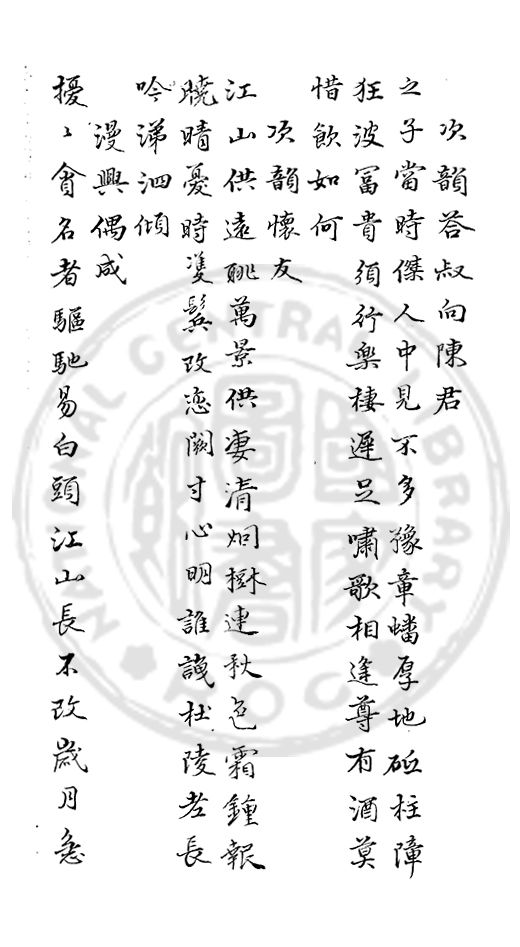 次韻答叔向陳君
之子當時傑人中見不多豫章蟠厚地砥柱障
狂波冨貴須行樂棲遲足嘯歌相逢尊有酒莫
惜飲如何
次韻懷友
江山供遠眺萬景供凄清烱樹連秋色霜鍾報
曉晴憂時雙鬂改戀闕寸心明誰謂杜陵老長
吟涕泗傾
漫興偶成
擾〻會名者驅馳易白頭江山長不改歲月急
NATIONAL CENTRAL LIBRARY
ROC